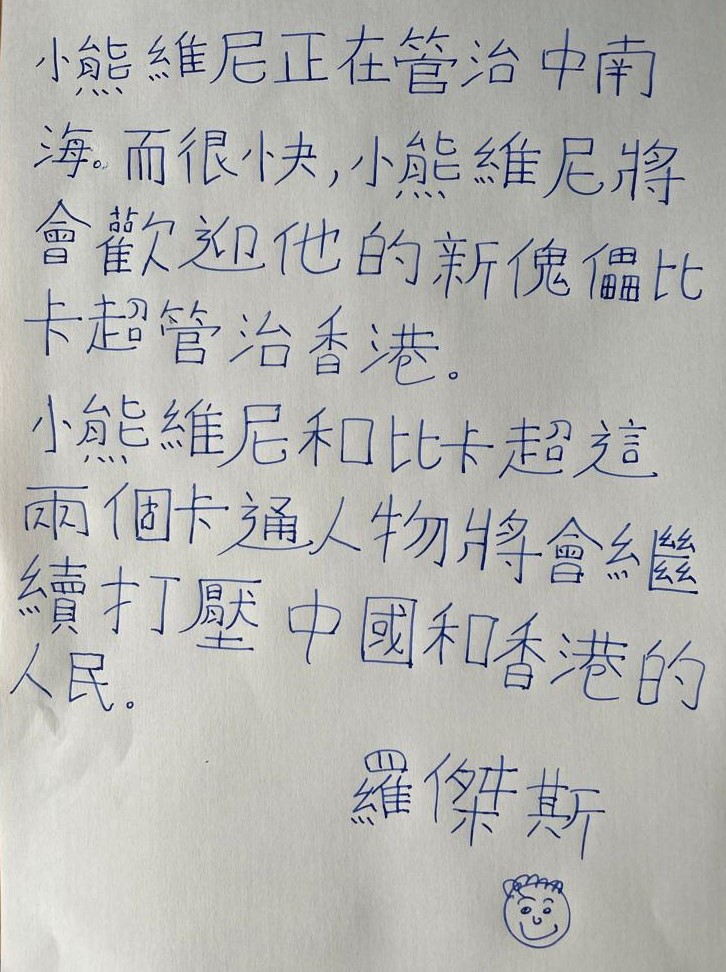 小熊維尼正在管治中南
海。而很快,小熊維尼將
會歡迎他的新傀儡比
卡超管治香港。
小熊維尼和比卡超這
兩個卡通人物將會繼
續打壓中國和香港的
人民。
羅傑斯